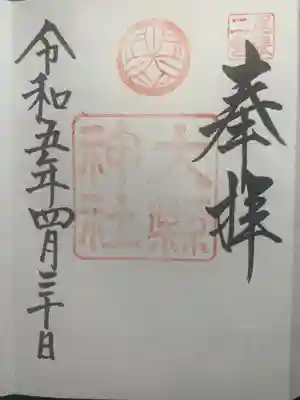 奉拝
大縣
神社
令和五年四月三十日